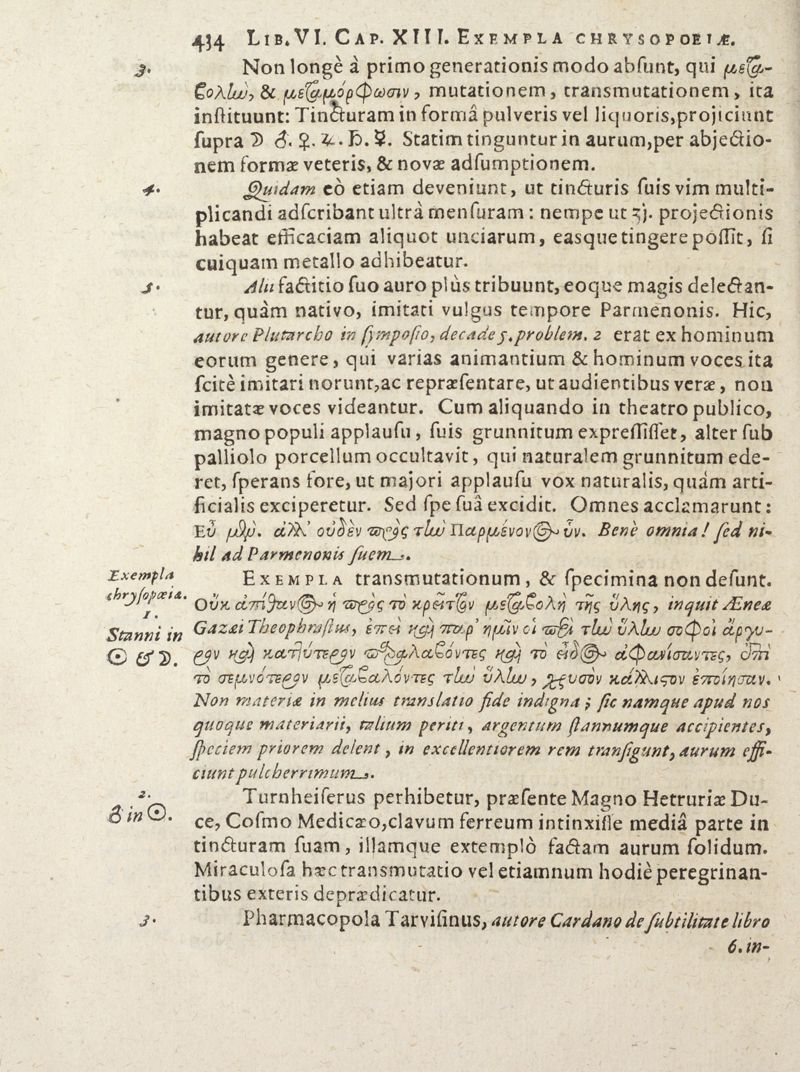 434 LIB. VI. CAP. XIII. EXEMPLA CHRYSOPOEIÆ.
3. Non longè à primo generationis modo absunt, qui μεϐα-
ϐολὴν, & μεταμόρφωσιν, mutationem, transmutationem, ita
instituunt: Tincturam in formâ pulveris vel liquoris, projiciunt
supra ☽ ♂. ♀. ♃. ♄. ☿. Statim tinguntur in aurum, per abjectio-
nem formæ veteris, & novæ adsumptionem.
4. Quidam eò etiam deveniunt, ut tincturis suis vim multi-
plicandi adscribant ultrà mensuram: nempe ut ʒj. projectionis
habeat efficaciam aliquot unciarum, easque tingere possit, si
cuiquam metallo adhibeatur.
5. Alii factitio suo auro plùs tribuunt, eoque magis delectan-
tur, quàm nativo, imitati vulgus tempore Parmenonis. Hic,
autore Plutarcho in symposio, decade 5. problem. 2 erat ex hominum
eorum genere, qui varias animantium & hominum voces ita
scitè imitari norunt, ac repræsentare, ut audientibus veræ, non
imitatæ voces videantur. Cum aliquando in theatro publico,
magno populi applausu, suis grunnitum expressisset, alter sub
palliolo porcellum occultavit, qui naturalem grunnitum ede-
ret, sperans fore, ut majori applausu vox naturalis, quàm arti-
ficialis exciperetur. Sed spe suâ excidit. Omnes acclamarunt:
Εὖ μὲν. ἀλλ' οὐδὲν πρὸς τὴν Παρμένοντ(ος) ὗν. Benè omnia! sed ni-
hil ad Parmenonis suem.
Exempla
chrysopœiæ.
1.
Stanni in
☉ & ☽.
EXEMPLA transmutationum, & specimina non desunt.
Οὐκ ἀπίθανος ἡ πρὸς τὸ κρεῖττον μεταϐολὴ τῆς ὕλης, inquit Æneæ
Gazæi Theophrastus, ἐπεὶ καὶ παρ' ἡμῖν οἱ περὶ τὴν ὕλην σοφοὶ ἀργυ-
ρον καὶ καττίτερον παραλαϐόντες καὶ τὸ εἶδος ἀφανίσαντες, ἐπὶ
τὸ σεμνότερον μεταϐαλόντες τὴν ὕλην, χρυσὸν κάλλιστον ἐποίησαν.
Non materiæ in melius translatio fide indigna; sic namque apud nos
quoque materiarii, talium periti, argentum stannumque accipientes,
speciem priorem delent, in excellentiorem rem transfigunt, aurum effi-
ciunt pulcherrimum.
2.
♂ in ☉.
Turnheiserus perhibetur, præsente Magno Hetruriæ Du-
ce, Cosmo Medicæo, clavum ferreum intinxisse mediâ parte in
tincturam suam, illamque extemplò factam aurum solidum.
Miraculosa hæc transmutatio vel etiamnum hodiè peregrinan-
tibus exteris deprædicatur.
3. Pharmacopola Tarvisinus, autore Cardano de subtilitate libro
6. in-